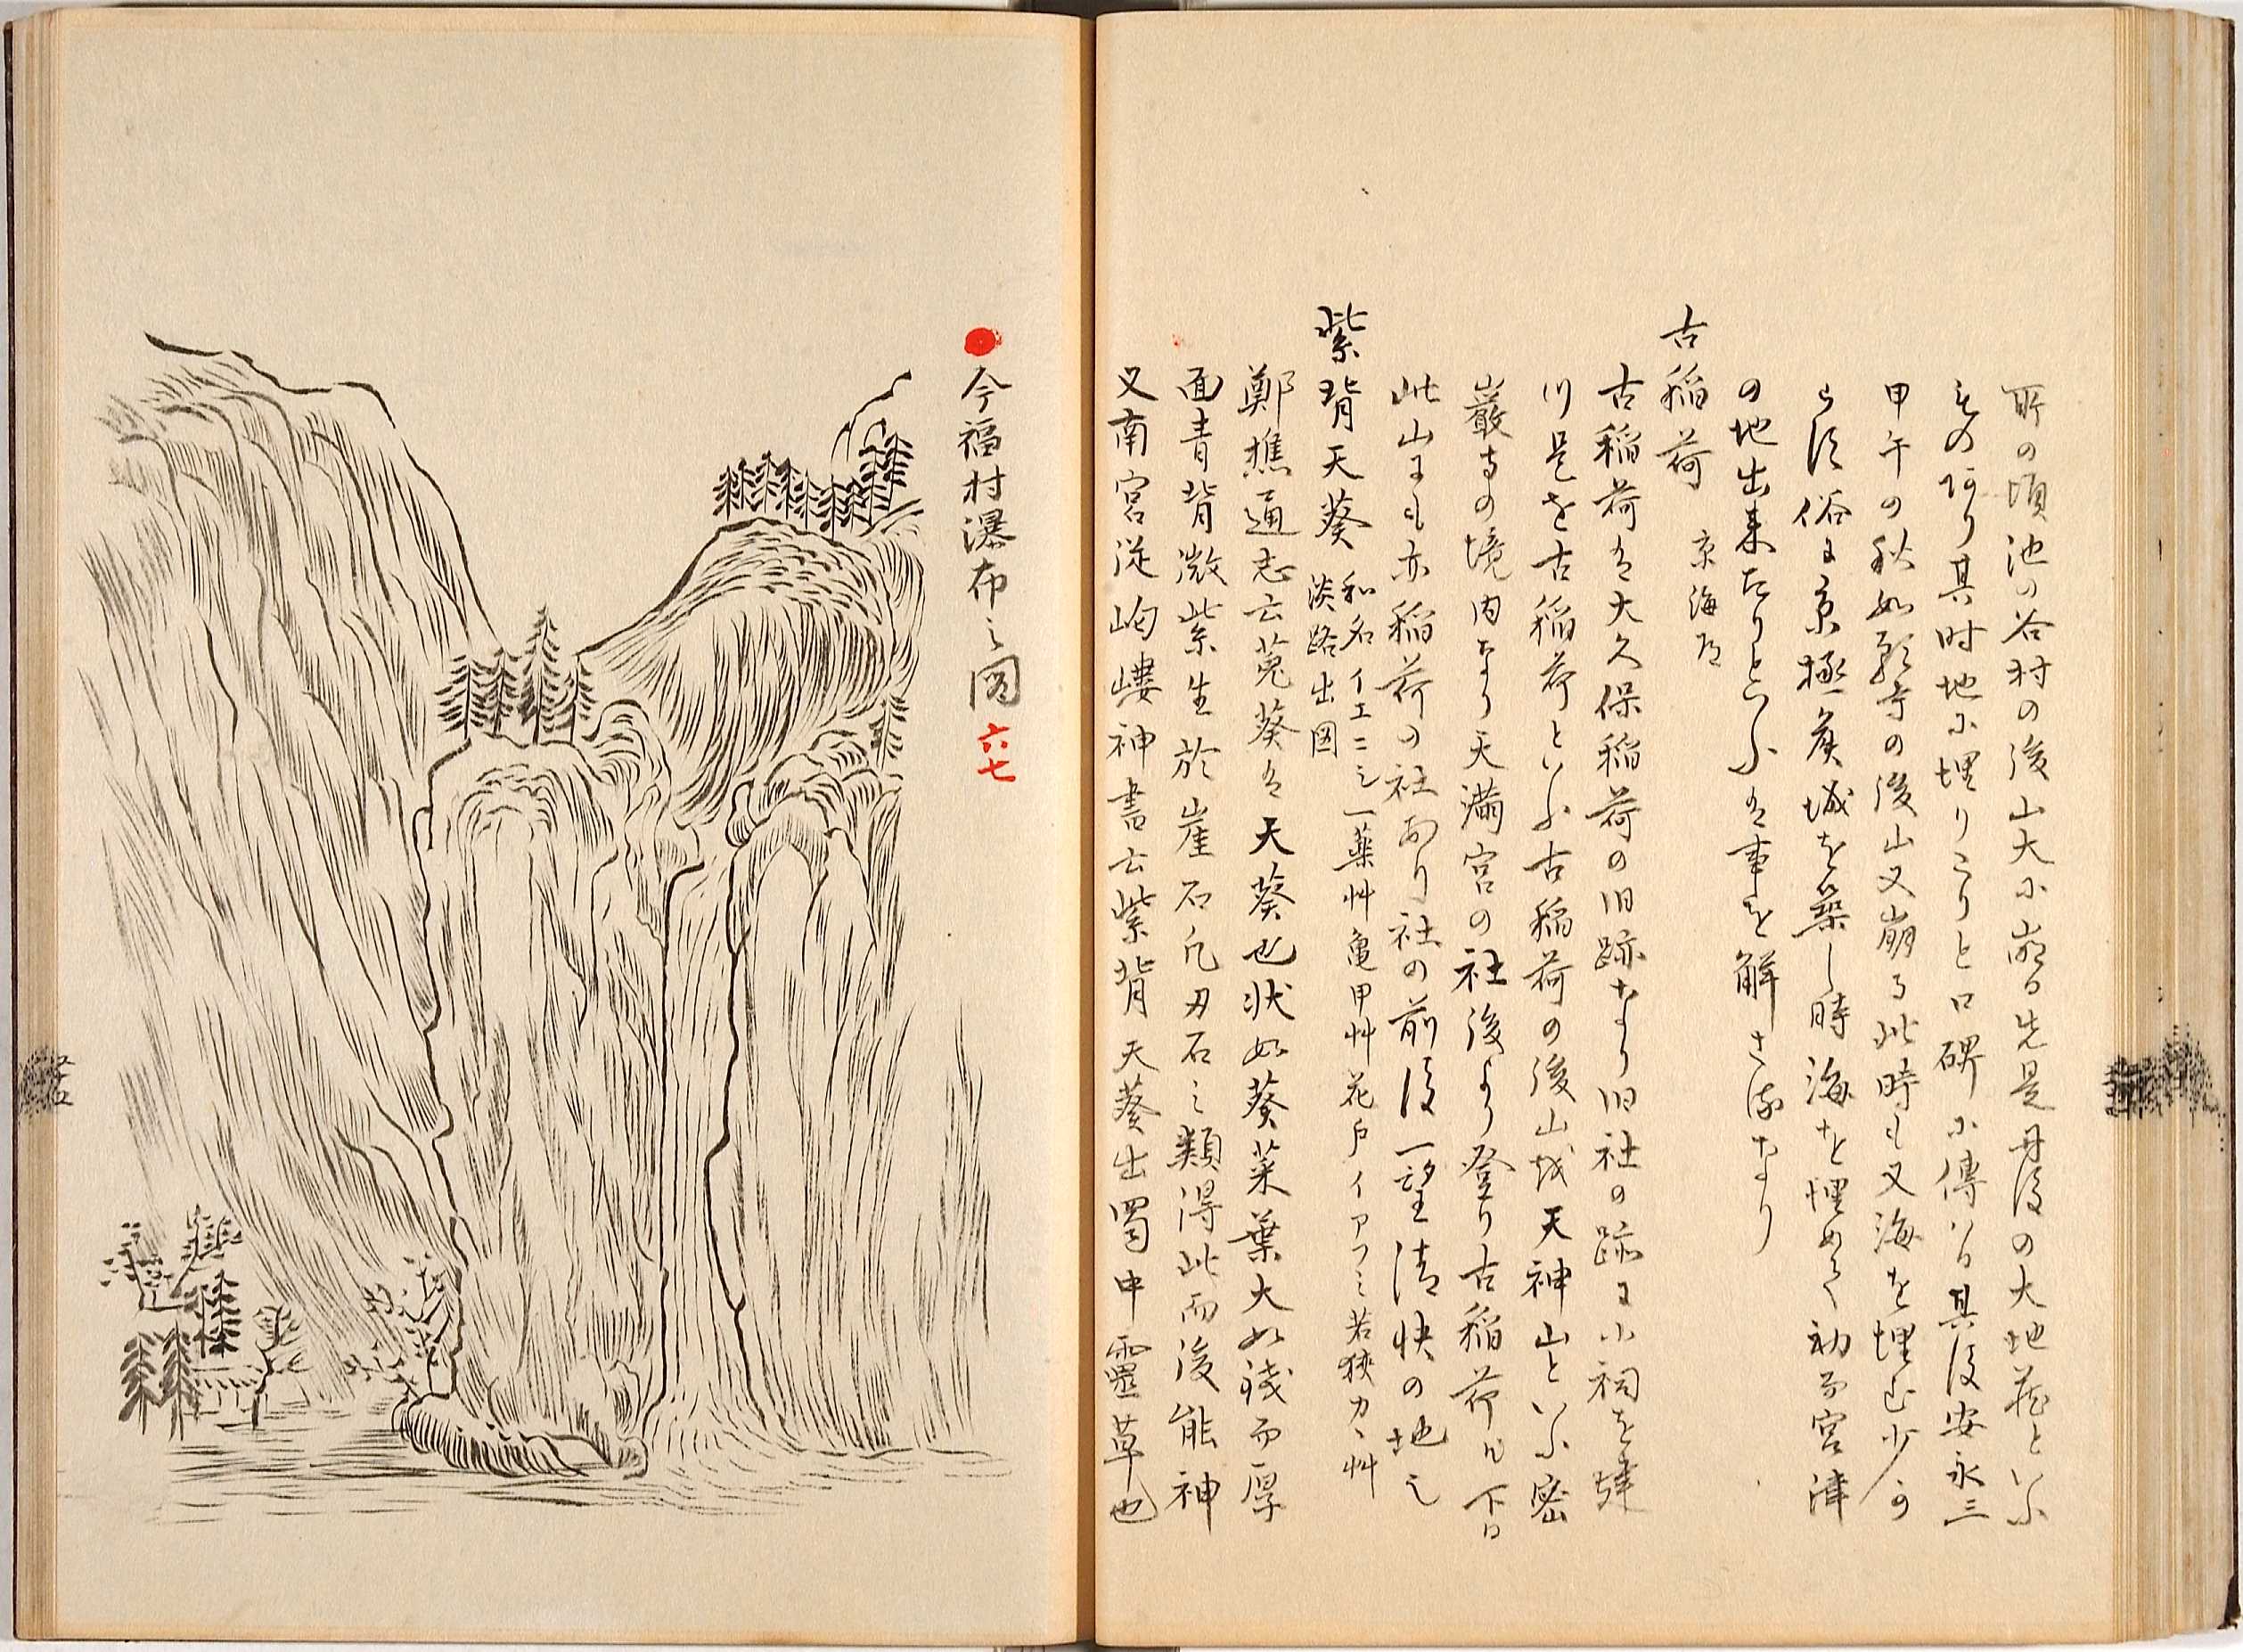 所の頃池の谷村の後山大に崩る先是丹後の大地蔵といふ
ものあり其時地に埋りたりと口碑に傳ハる其後安永三
甲午の秋如願寺の後山又崩る此時も又海を埋む少か
らす俗に京極侯城を築し時海を埋めて初而宮津
の地出来たりといふハ事を解さぬなり
古稲荷
古稲荷ハ大久保稲荷の旧跡なり旧社の跡に小祠を建
川是を古稲荷といふ古稲荷の後山を天神山といふ密
巌寺の境内なり天満宮の社後より登り古稲荷に下る
此山にも亦稲荷の社あり社の前後一望清快の地也
紫背天葵 和名イエニレ一薬艸亀甲艸花戸イアフミ若狭カヽ艸
淡路出図
鄭樵通志云菟葵ハ天葵也状如葵菜葉大如銭而厚
面青背微紫生於崖石凡丹石之類得此而後能神
又南宮従岣嶁神書云紫背天葵出蜀中靈草也
今福村瀑布之図 六七